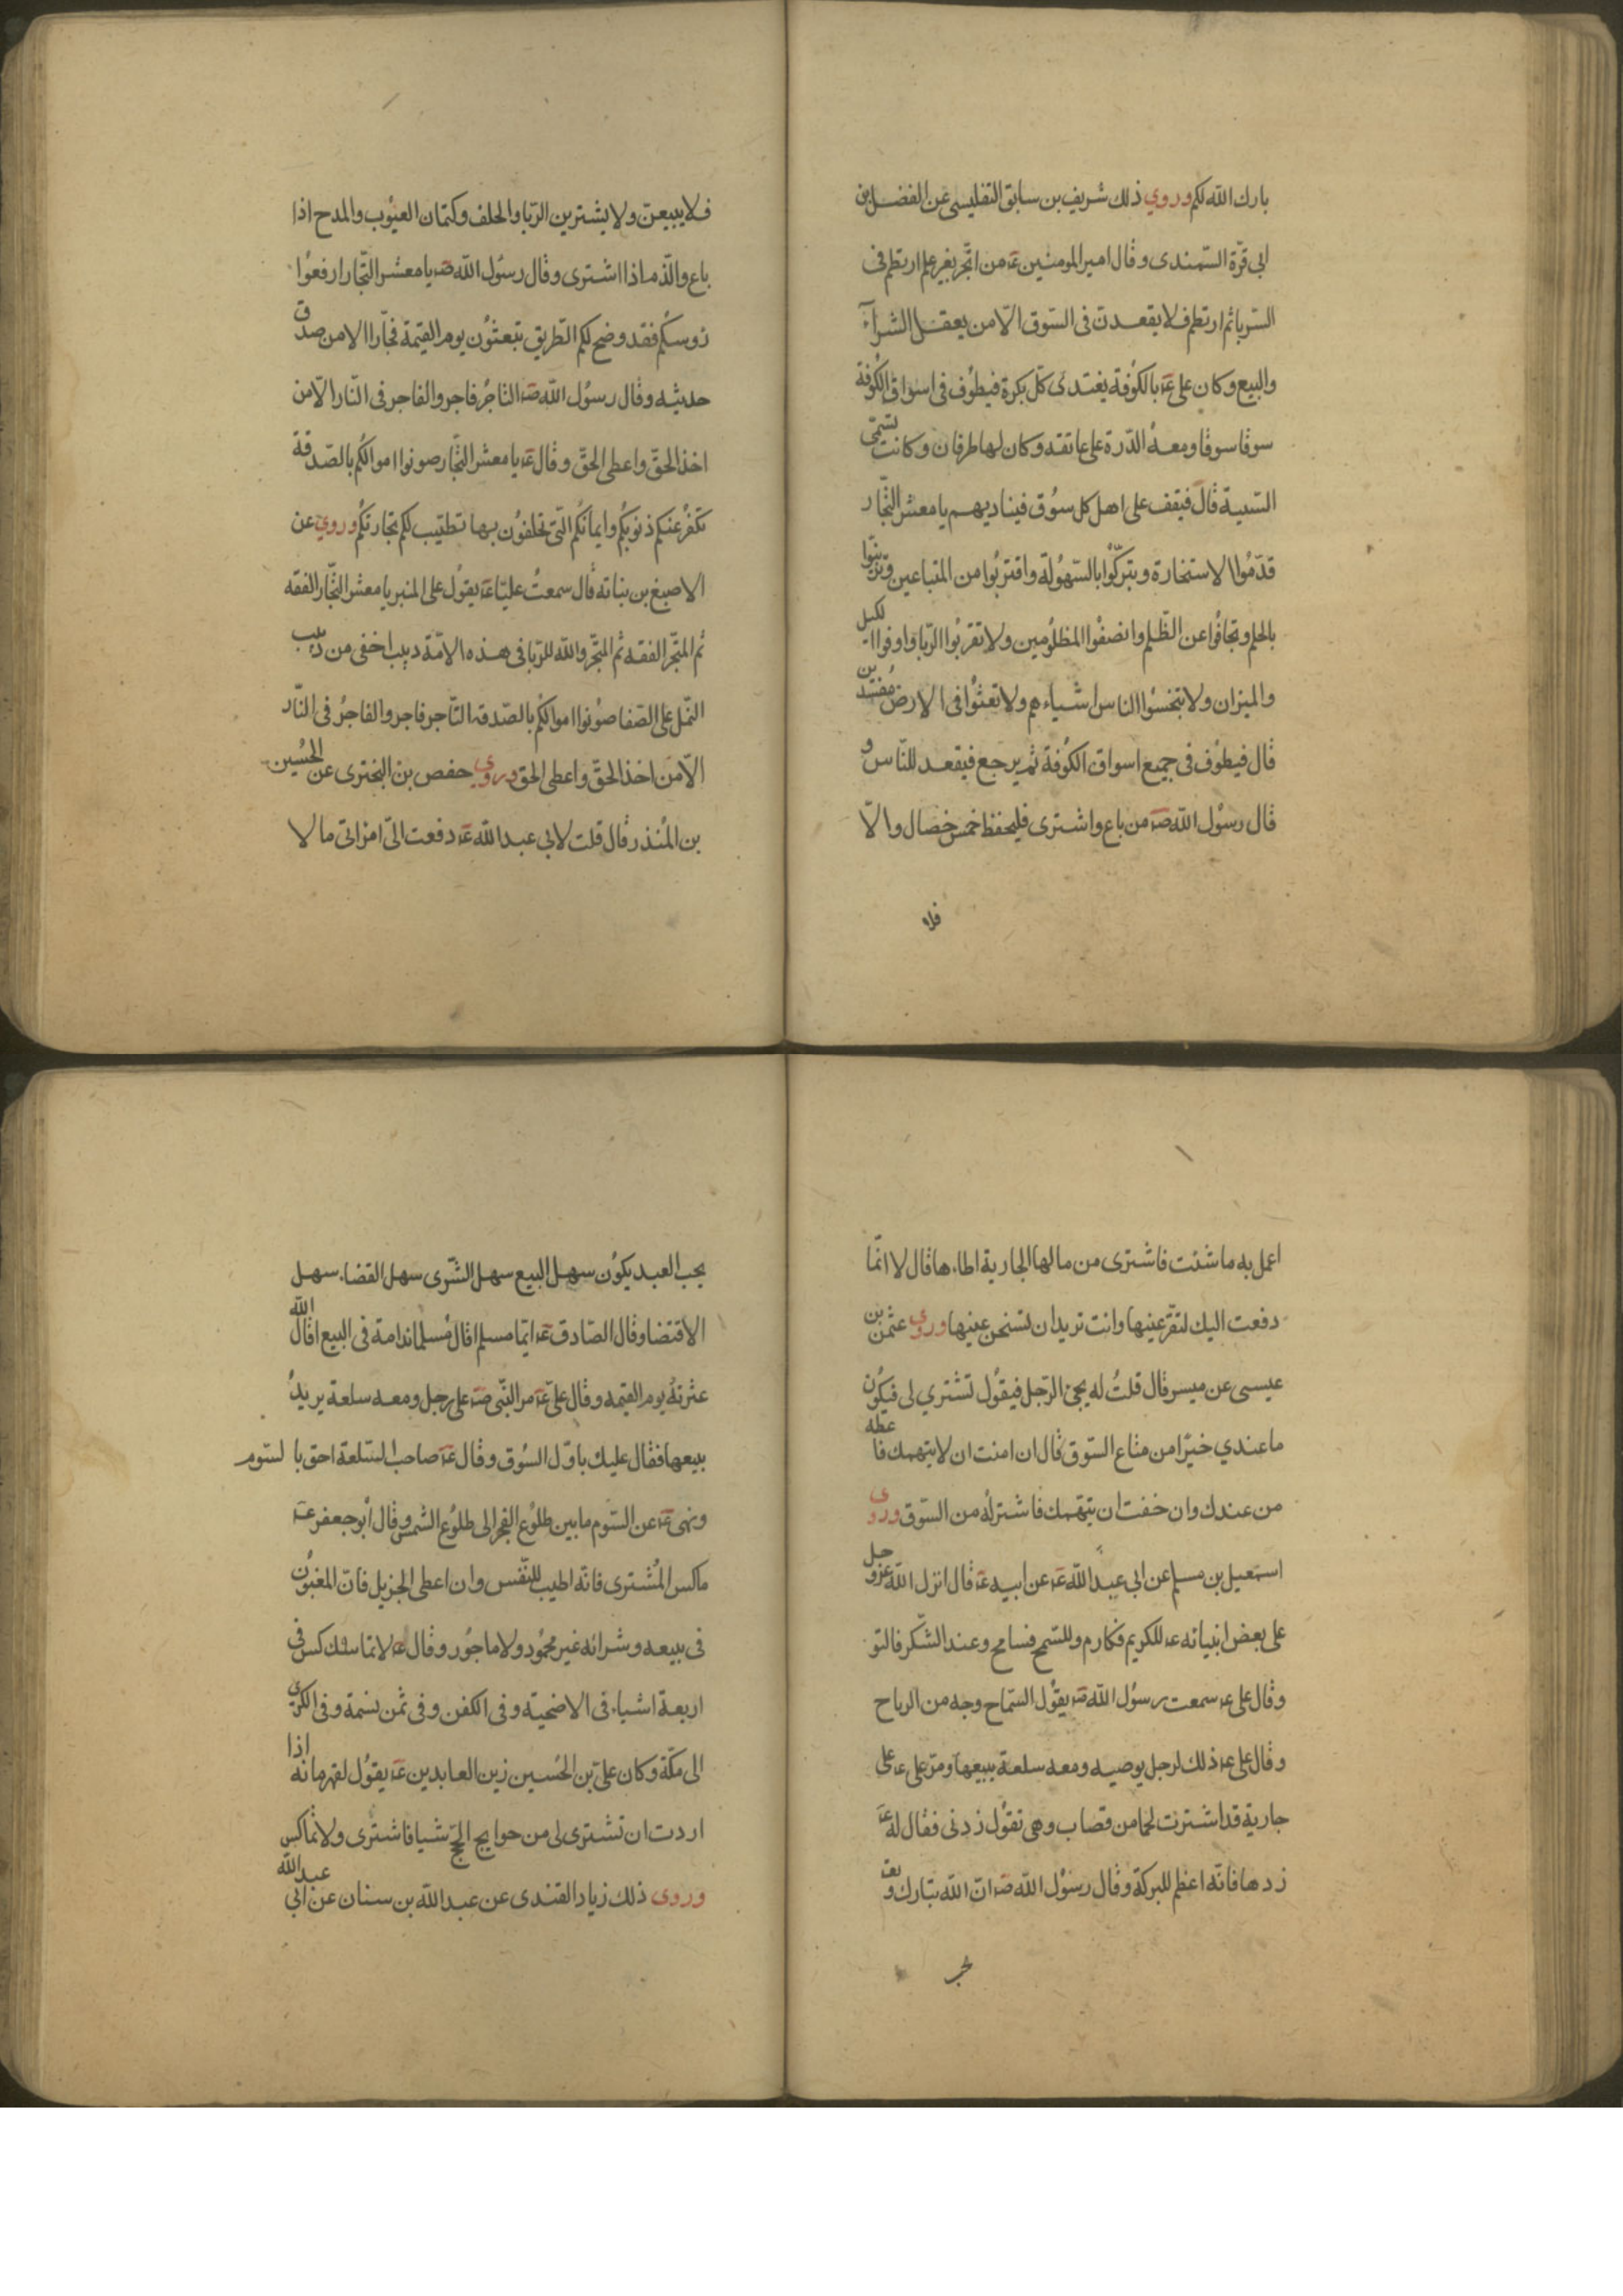 بارك الله لكم وروي ذلك شريف بن سابق التفليسى عن الفضل بن
ابى قرّة السّمندى وقال امير المومنين عۤ من اتّجر بغير علم ارتطم فى
الرّبا ثم ارتطم فلا يقعدن فى السّوق الّا من يعقل الشرآء
والبيع وكان على عۤ بالكُوفة يغتدى كلّ بكرة فيطوُف فى اسواق الكُوفة
سوقا سوقا ومعهُ الدّرة على عاتقه وكان لها طرفان وكانت تسمّى
السّبيبة قال فيقف على اهل كل سوُق فيناديهم يا معشر التّجار
قدّمُوا الاستخارة وتبركّوُا بالسّهُولة واقتربُوا من المتباعين وتزينّوا
بالحلم وتجافوُا عن الظّلم وانصفُوا المظلوُمين ولا تقربُوا الرّبا واوفوا الكيل
والميزان ولا تبخسُوا الناس اشياءهم ولا تعثوُا فى الارض مُفسدين
قال فيطوُف فى جميع اسواق الكوُفة ثم يرجع فيقعد للنّاس و
قال رسوُل الله صۤ من باع واشترى فليحفظ خمس خصال والّا
فلا
فلا يبيعنّ ولا يشترين الرّبا والحلف وكتمان العيوُب والمدح اذا
باع والذّم اذا اشترى وقال رسوُل الله صۤ يا معشر التّجار ارفعوُا
رُوسكُم فقد وضح لكم الطّريق تبعثوُن يوم القيمة فجّارا الا من صدق
حديثه وقال رسوُل الله صۤ التاجُر فاجر والفاجر فى النّار الّا من
اخذ الحقّ واعطى الحقّ وقال عۤ يا معشر التّجار صونوا اموالكُم بالصّدقة
تكفّر عنكم ذنوبكُم وايمانكُم الّتى تحلفوُن بها تطيّب لكم تجارتكُم وروي عن
الاصبغ بن نباته قال سمعتُ عليّا عۤ يقوُل على المنبر يا معشر التّجار الفقه
ثم المتجّر الفقه ثم المتجّر والله للرّبا فى هذه الامّة دبيب اخفى من دبيب
النّمل على الصّفا صوُنوا اموالكُم بالصّدقه التّاجر فاجر والفاجرُ فى النّار
الّا من اخذ الحقّ واعطى الحق وروي حفص بن البخترى عن الحُسين
بن المُنذر قال قلت لابي عبد الله عۤ دفعت الىّ امراتى مالا
اعمل به ما شئت فاشترى من مالها الجارية اطاءها قال لا انّما
دفعت اليك لتقرّ عينها وانت تريد ان تسخن عينها وروي عثمن بن
عيسى عن ميسر قال قلتُ له يجئ الرّجل فيقوُل تشتري لى فيكوُن
ما عندي خيرًا من متاع السّوق قال ان امنت ان لا يتهمك فاعطه
من عندك وان خفت ان يتّهمك فاشترلُه من السّوق وروى
اسمعيل بن مسلم عن ابى عبد الله عۤ عن ابيه عۤ قال انزل الله عزّوجل
على بعض انبيائه عۤ للكريم فكارم وللسّمح فسامح وعند الشّكر فالتو
وقال على عۤ سمعت رسوُل الله صۤ يقوُل السّماح وجه من الرباح
وقال على عۤ ذلك لرجل يوصيه ومعه سلعة يبيعها ومرّ على عۤ على
جارية قد اشترت لحما من قصاب وهى تقوُل زدنى فقال له عۤ
زدها فانّه اعظم للبركة وقال رسوُل الله صۤ انّ الله تبارك وتعۤ
يحب
يحب العبد يكوُن سهل البيع سهل الشّرى سهل القضاء سهل
الاقتضا وقال الصّادق عۤ ايّما مسلم اقال مُسلما ندامة فى البيع اقال الله
عثرتهُ يوم القيمه وقال علىّ عۤ مر النّبى صۤ على رجل ومعه سلعة يريدُ
بيعها فقال عليك باوّل السُوق وقال عۤ صاحب السّلعة احق بالسّوم
ونهى عۤ عن السّوم ما بين طلوُع الفجر الى طلوُع الشّمس وقال أبو جعفر عۤ
ماكس المُشترى فانّه اطيب للنّفس وان اعطى الجزيل فانّ المغبوُن
فى بيعه وشرائه غير محموُد ولا ماجُور وقال عۤ لا تماكس فى
اربعة اشياء فى الاضحيّه وفى الكفن وفى ثمن نسمة وفى الكرى
الى مكّة وكان علىّ بن الحُسين زين العابدين عۤ يقوُل لقهرمانه اذا
اردت ان تشترى لى من حوايج الحجّ شيا فاشترى ولا تماكس
وروى ذلك زياد القندى عن عبد الله بن سنان عن ابي عبد الله